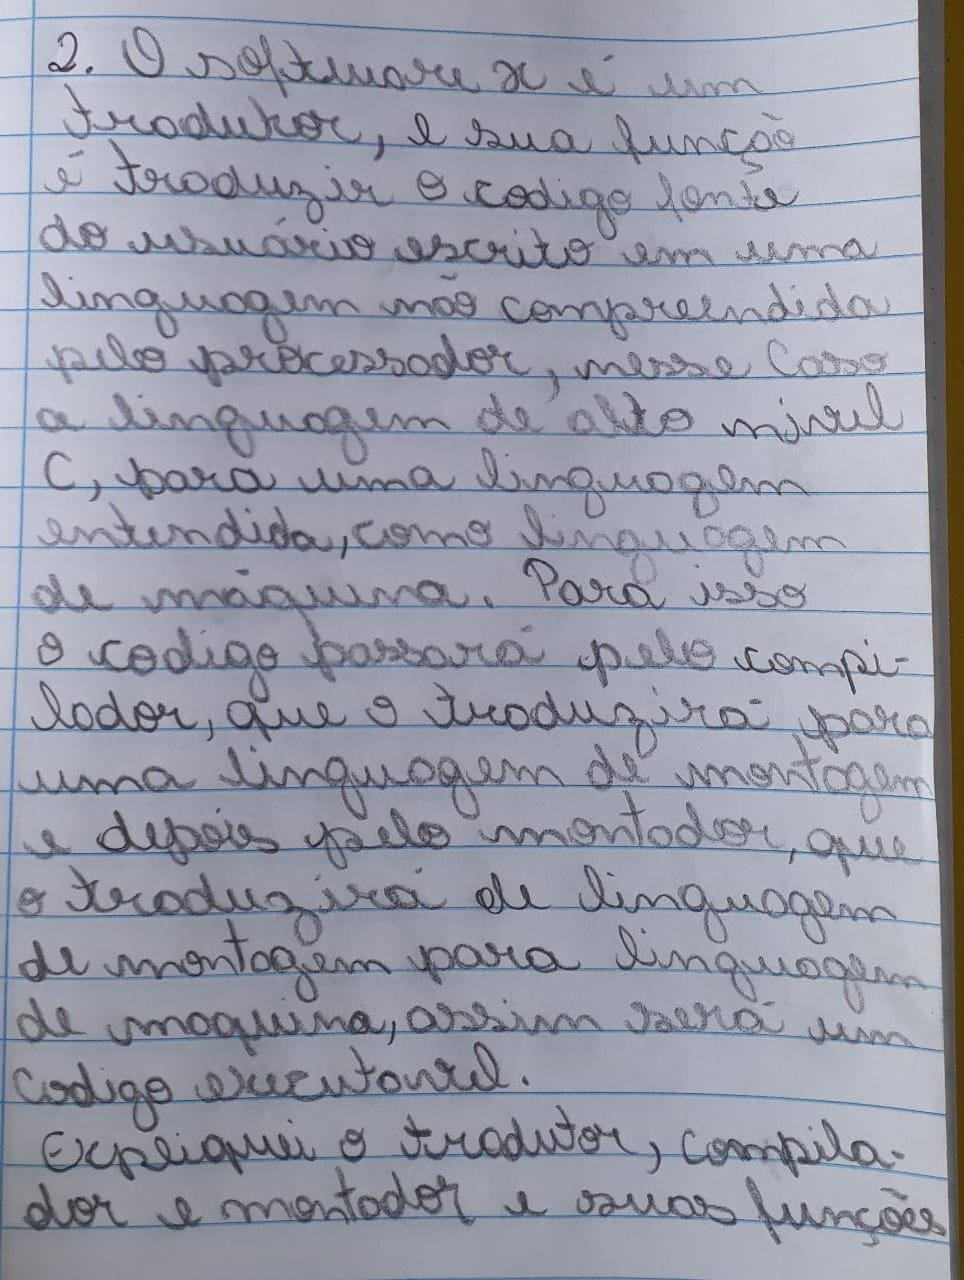 2. O software x é um
tradutor, e sua função
é traduzir o codigo fonte
do usuário escrito em uma
linguagem não compreendida
pelo processador, nesse Caso
a linguagem de alto nivel
C, para uma linguagem
entendida, como linguagem
de máquina. Para isso
o codigo passará pelo compi-
lador, que o traduzirá para
uma linguagem de montagem
e depois pelo montador, que
o traduzirá de linguagem
de montagem para linguagem
de maquina, assim será um
codigo executavel.
Expliquei o tradutor, compila-
dor e montador e suas funções